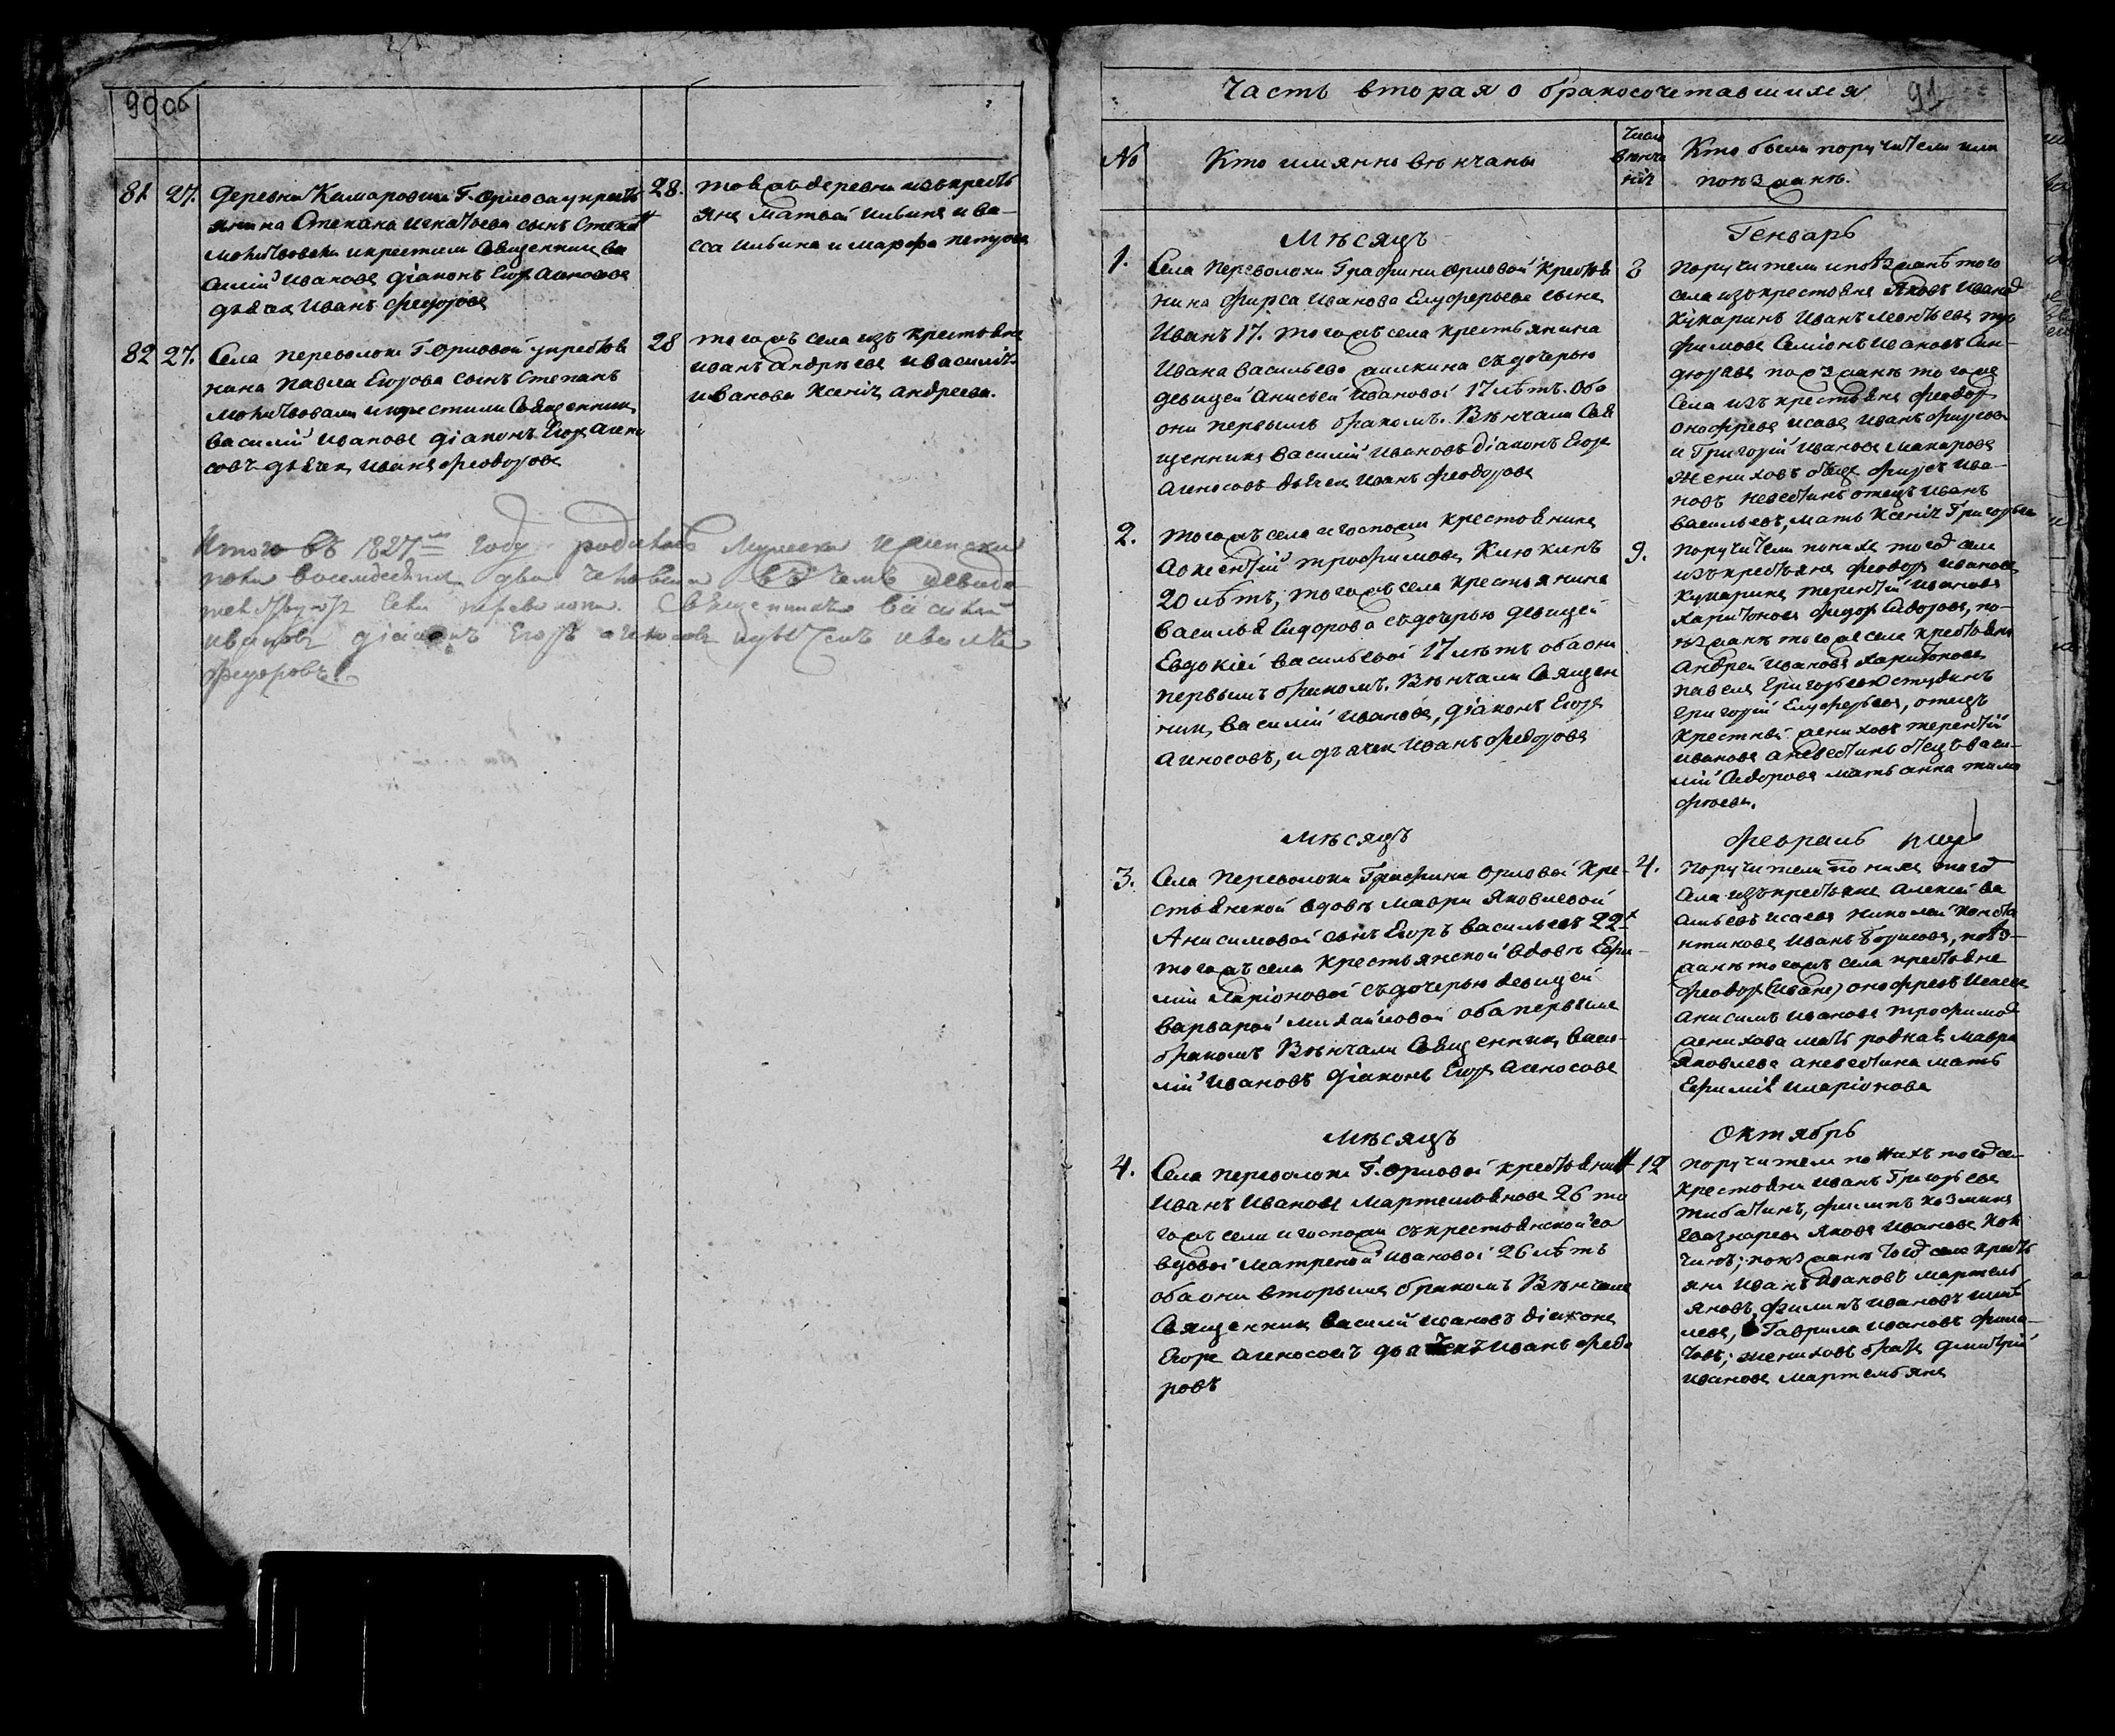 90об
81. 27. Деревни Камаровки Г. Орловаукресть
янина Степана Игнатьева сынъ Степан
молитвовали икрестили Священникъ Ва
силій Ивановъ діаконъ Егоръ Агносовъ
дьячекъ Иванъ Федоровъ
28. тояжъ деревни изъкресть
яне Матвей Ильинъ и Ва-
сса Ильина и Марфа Петрова
82 27. Села Переволоки Г. Орловой укрестья
нина Павла Егорова сынъ Степанъ
молитвовали икрестили Священникъ
Василій Ивановъ діаконъ Егоръ Агно
совъ дьячекъ Иванъ Феодоровъ
28 тогожъ села изъ крестьяне
Иванъ Андреевъ и Василій
Иванова Ксенія Андреева.
Итого въ 1827мъ году родилось мужеска и женска
пола восемьдесятъ два человека въ чемъ
села Переволоки Священникъ Василій
Ивановъ діаконъ Егоръ Агносовъ дьячекъ Иванъ
Федоровъ
Часть вторая о бракосочетавшихся
91
№
Кто имянно вѣнчаны
Число
вѣнча
нія
Кто были поручители или
поѣзжанѣ.
Мѣсяцъ
Генварь
1. Села Переволоки Графини Орловой Крестья
нина Фирса Иванова Елуферьева сынъ
Иванъ 17. тогожъ села крестьянина
Ивана Васильева съдочерью
девицей Анисьей Ивановой 17 лѣтъ. оба
они первымъ бракомъ. Вѣнчали Свя
щенникъ Василій Ивановъ діаконъ Егоръ
Агносовъ дьячекъ Иванъ Феодоровъ
8 Поручители ипоѣзжанѣ того
села изъкрестьянъ Яковъ Иванов
Кукаринъ Иванъ Леонтьевъ тро
фимовъ Семіонъ Ивановъ Син-
дюковъ поѣзжанѣ тогоже
села изъ крестьянъ Феодор
Онофреевъ Исаевъ Иванъ
и Григорій Ивановъ Макаровъ
жениховъ отецъ Фирсъ Ива-
новъ невестинъ отецъ Иванъ
Васильевъ, мать Ксенія Григорьева
2. тогожъ села игоспожи крестьянинъ
Авксентій трофимовъ Клюкинъ
20 лѣтъ; тогожъ села крестьянина
Василья Сидорова съдочерью девицей
Евдокіей Васильевой 17 лѣтъ обаони
первымъ бракомъ. Вѣнчали Священ
никъ Василій Ивановъ, діаконъ Егоръ
Агносовъ, и дьячекъ Иванъ Федоровъ
9. Поручители понихъ тогож села
изъкрестьянъ Феодоръ Ивановъ
Кукаринъ терентій Ивановъ
Харитоновъ Федоръ Сидоровъ, по-
ѣзжанѣ тогоже села крестьяне
Андрей Ивановъ Харитоновъ
Павелъ Григорьевъ
Григорій Елуферьевъ, отецъ
крестный жениховъ терентій
Ивановъ аневестинъ отецъ Васи-
лій Сидоровъ мать Анна тимо
феева.
Мѣсяцъ
Февраль
3. Села Переволоки Графини Орловой Кре-
стьянской вдовѣ Мавры Яковлевой
Анисимовой сынъ Егоръ Васильевъ 22х
тогожъ села крестьянской вдовѣ Ефи-
міи Ларіоновой съдочерью девицей
Варварой Михайловой оба первымъ
бракомъ Вѣнчали Священникъ Васи-
лій Ивановъ діаконъ Егоръ Агносовъ
4. Поручители по нихъ тогож
села изъкрестьяне Алексей Ва
сильевъ Исаевъ Николай Конста
нтиновъ Иванъ Борисовъ, поѣз-
жанѣ тогожъ села крестьяне
Феодоръ (Иванъ) Онофреевъ Исаевъ
Анисимъ Ивановъ трофимов
женихова мать родная Мавра
Яковлева аневестина мать
Ефимія Иларіонова
Мѣсяцъ
Октябрь
4. Села Переволоки Г. Орловой крестьянин
Иванъ Ивановъ Мартемьяновъ 26 то
гожъ села и госпожи скрестьянской со
вдовой Матреной Ивановой 26 лѣтъ
обаони вторымъ бракомъ Вѣнчали
Священникъ Василій Ивановъ діаконъ
Егоръ Агносовъ дьячекъ Иванъ Федо
ровъ
12 поручители по нихъ тогож се-
крестьяне Иванъ Григорьевъ
Филипъ Козминъ
Яковъ Ивановъ Кок
чинъ; поѣзжанѣ тогож села кресть
яне Иванъ Ивановъ Мартемь
яновъ, Филипъ Ивановъ
левъ, Гаврила Ивановъ Фила-
товъ; жениховъ братъ Дмитрій
Ивановъ Мартемьянъ